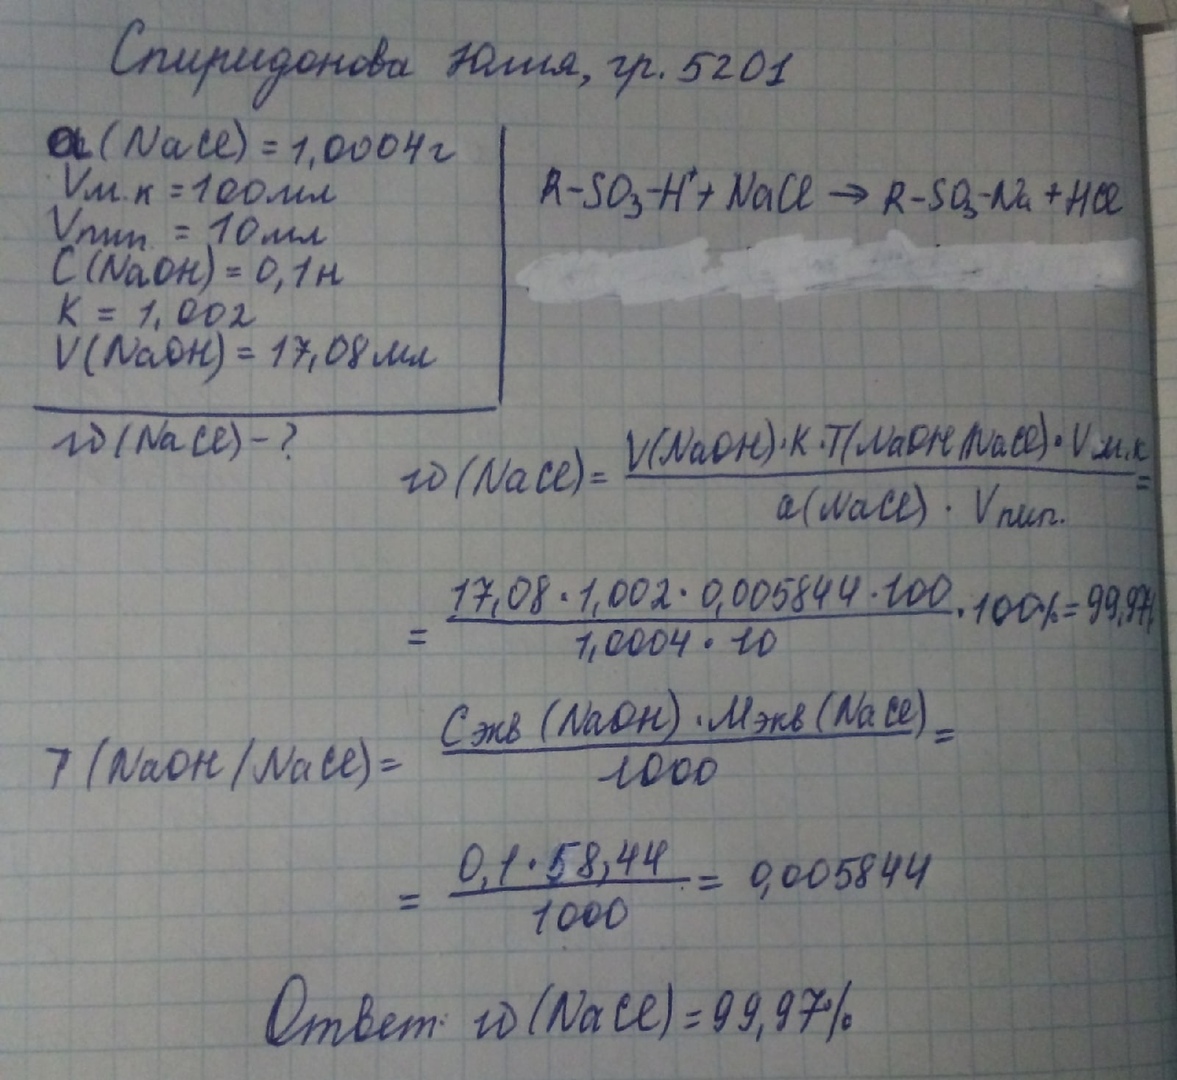 Спиридонова Юлия, гр. 5201
a(NaCl) = 1,0004г
Vм.к = 100мл
Vпип. = 10мл
C(NaOH) = 0,1н
K = 1,002
V(NaOH) = 17,08мл
w(NaCl) - ?
R-SO₃-H⁺ + NaCl → R-SO₃-Na + HCl
w(NaCl) = V(NaOH)·K·T(NaOH/NaCl)·Vм.к =
a(NaCl) · Vпип.
= 17,08·1,002·0,005844·100 · 100% = 99,97%
1,0004 · 10
T(NaOH/NaCl) = Cэкв (NaOH)·Mэкв(NaCl) =
1000
= 0,1·58,44 = 0,005844
1000
Ответ: w(NaCl) = 99,97%